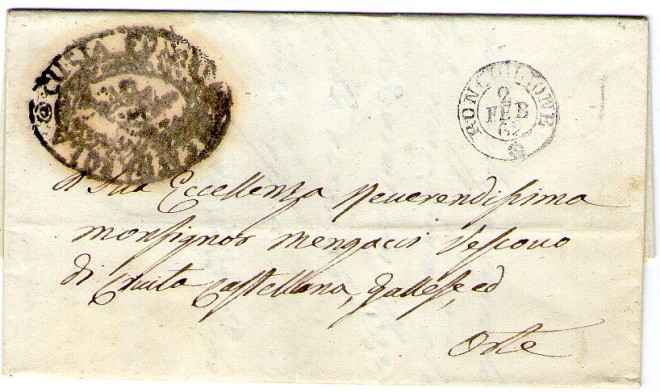 CURIA
RONCIGLIONE
2
FEB
62
A Sua Eccellenza Reverendissima
Monsignor Mengacci Vescovo
di Civita Castellana, Gallese, ed
Orte